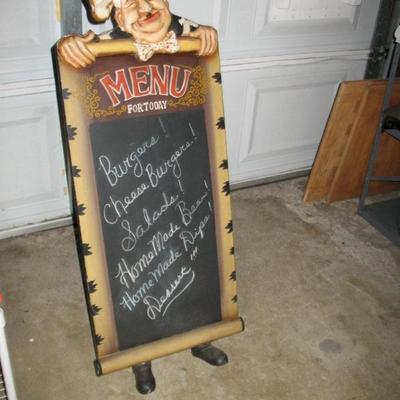 MENU
FOR TODAY
Burgers!
Cheese Burgers!
Salads!
HomeMade Beer!
HomeMade Dips!
Dessert!!!